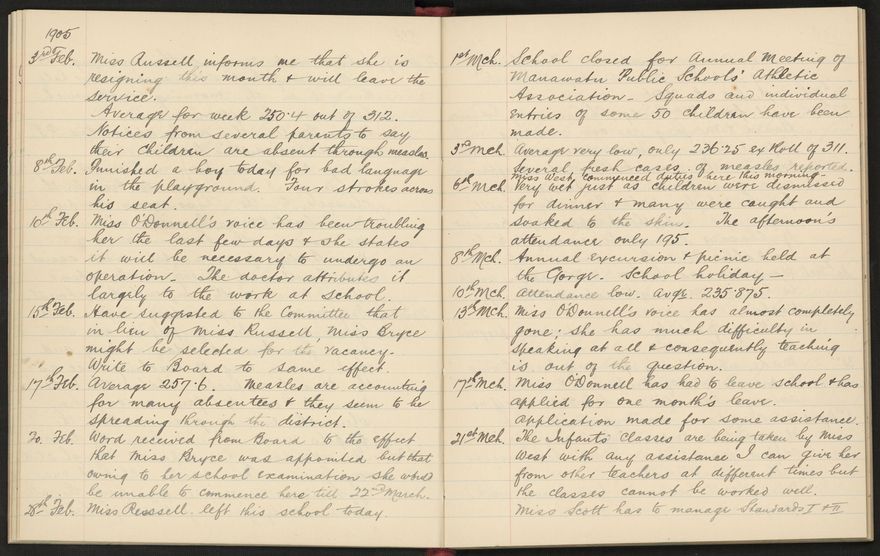 1905
3rd Feb. Miss Russell informs me that she is
resigning this month & will leave the
service.
Average for week 250.4 out of 312.
Notices from several parents to say
their children are absent through measles.
8th Feb. Punished a boy today for bad language
in the playground. Four strokes across
his seat.
10th Feb. Miss O'Donnell's voice has been troubling
her the last few days & she states
it will be necessary to undergo an
operation. The doctor attributes it
largely to the work at school.
15th Feb. Have suggested to the Committee that
in lieu of Miss Russell, Miss Bryce
might be selected for the vacancy.
Write to Board to same effect.
17th Feb. Average 257.6. Measles are accounting
for many absentees & they seem to be
spreading through the district.
20. Feb. Word received from Board to the effect
that Miss Bryce was appointed but that
owing to her school examination she would
be unable to commence here till 22nd March.
28th Feb. Miss Russell left this school today.
1st Mch. School closed for Annual Meeting of
Manawatu Public Schools' Athletic
Association - Squads and individual
entries of some 50 children have been
made.
3rd Mch. Average very low, only 236.25 ex Roll of 311.
Several fresh cases of measles reported.
Miss West commenced duties here this morning -
6th Mch. Very wet just as children were dismissed
for dinner & many were caught and
soaked to the skin. The afternoon's
attendance only 195.
8th Mch. Annual excursion & picnic held at
the Gorge. School holiday -
10th Mch. Attendance low. Avge. 235.875.
13th Mch. Miss O'Donnell's voice has almost completely
gone; she has much difficulty in
speaking at all & consequently teaching
is out of the question.
17th Mch. Miss O'Donnell has had to leave school & has
applied for one month's leave.
Application made for some assistance.
21st Mch. The Infants' classes are being taken by Miss
West with any assistance I can give her
from other teachers at different times but
the classes cannot be worked well.
Miss Scott has to manage Standards I & II